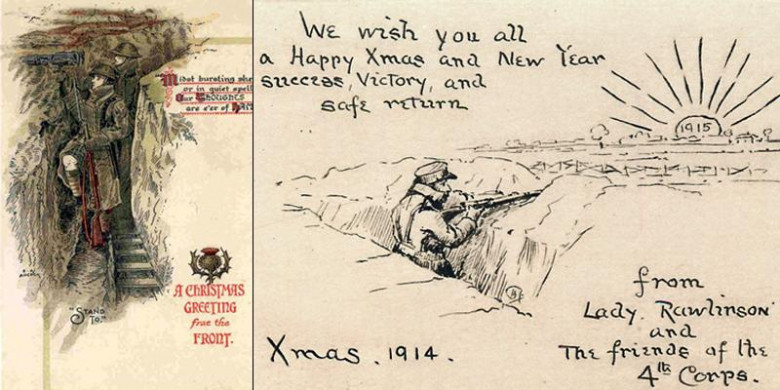 "Midst bursting she
or in quiet spell
Our Thoughts
are e'er of HAM
"STAND
TO."
A CHRISTMAS
GREETING
frae the
FRONT.
We wish you all
a Happy Xmas and New Year
success, Victory, and
safe return
1915
from
Lady Rawlinson
and
The friends of the
4th Corps.
Xmas. 1914.